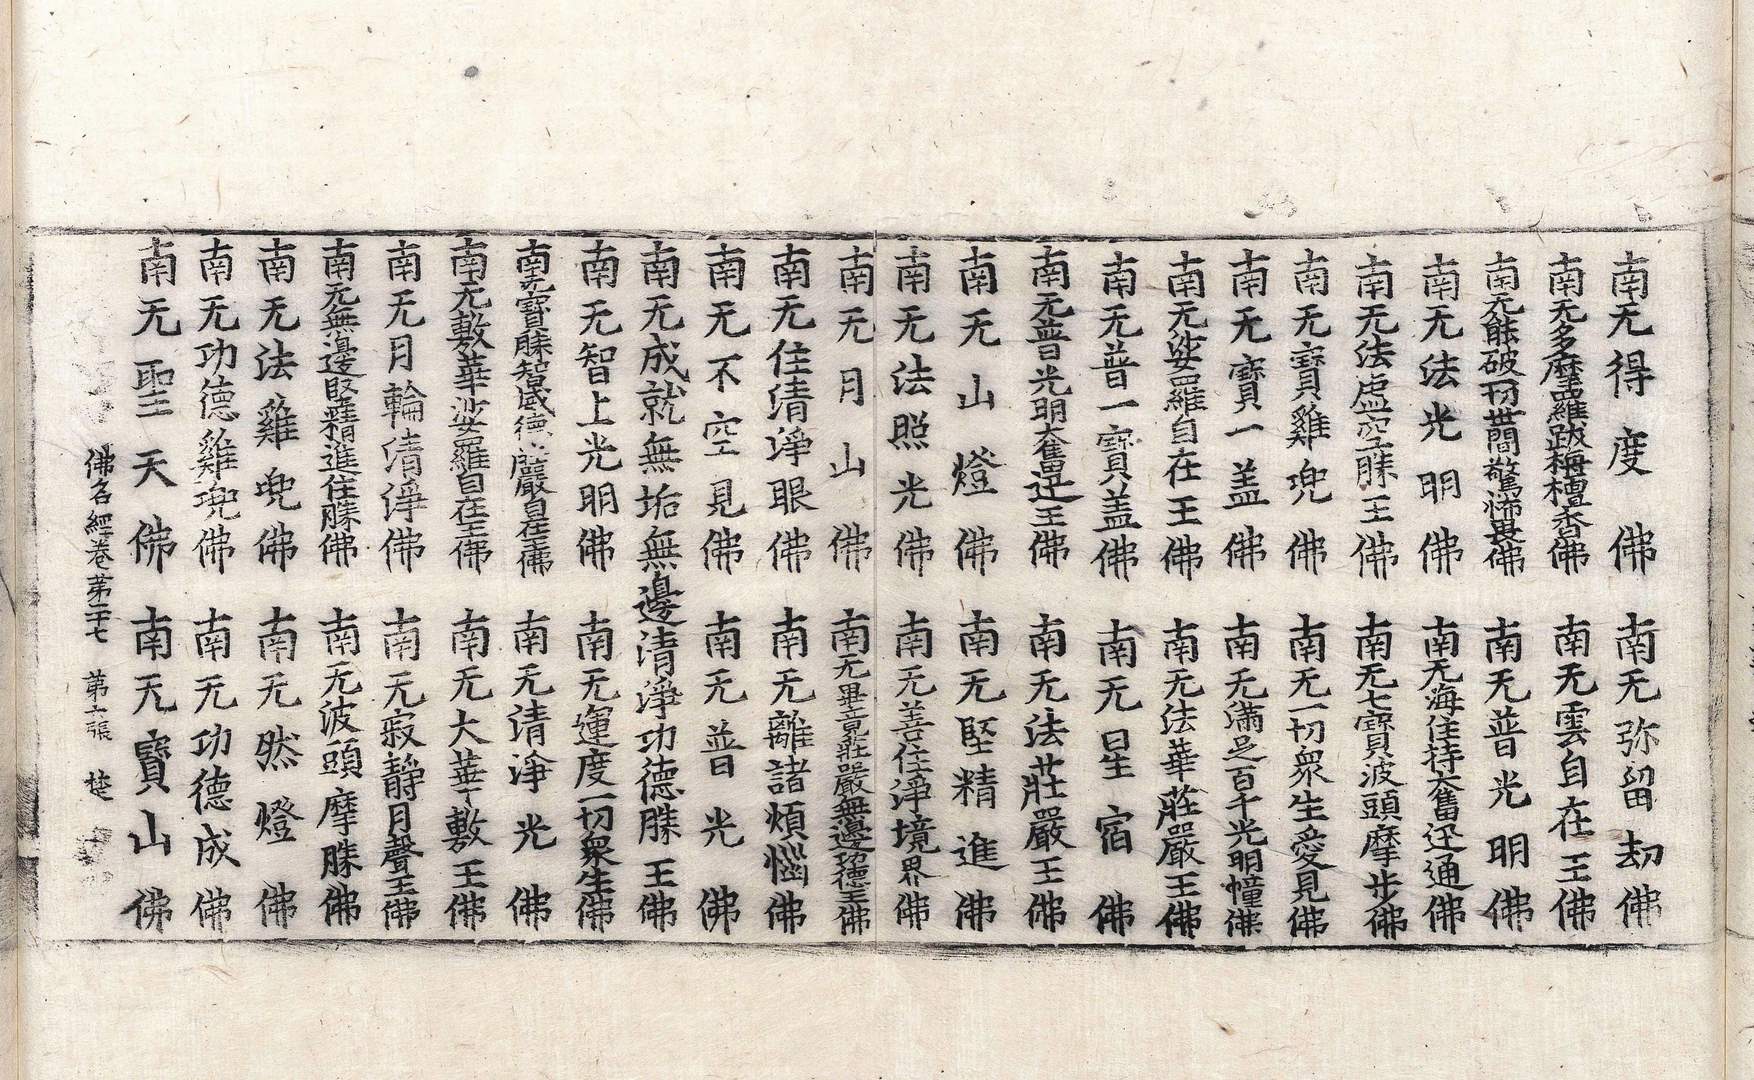 南无得度佛 南无弥留劫佛
南无多摩羅跋栴檀香佛 南无雲自在王佛
南无能破一切世間驚怖畏佛 南无普光明佛
南无法光明佛 南无海住持大奮迅通佛
南无法虛空勝王佛 南无七寶波頭摩步佛
南无寶雞兜佛 南无一切衆生愛見佛
南无寶一盖佛 南无滿足百千光明幢佛
南无娑羅自在王佛 南无法華莊嚴王佛
南无普一寶盖佛 南无星宿佛
南无普光明大奮迅王佛 南无法莊嚴王佛
南无山燈佛 南无堅精進佛
南无法照光佛 南无善住淨境界佛
南无月山佛 南无畢竟莊嚴無邊功德王佛
南无住清淨眼佛 南无離諸煩惱佛
南无不空見佛 南无普光佛
南无成就無垢無邊清淨功德勝王佛
南无智上光明佛 南无運度一切衆生佛
南无寶勝智威德莊嚴自在王佛 南无清淨光佛
南无敷華娑羅自在王佛 南无大華敷王佛
南无月輪清淨佛 南无寂靜月聲王佛
南无無邊堅精進住勝佛 南无波頭摩勝佛
南无法雞兜佛 南无然燈佛
南无功德雞兜佛 南无功德成佛
南无聖天佛 南无寶山佛
佛名經卷第二十七 第六張 楚